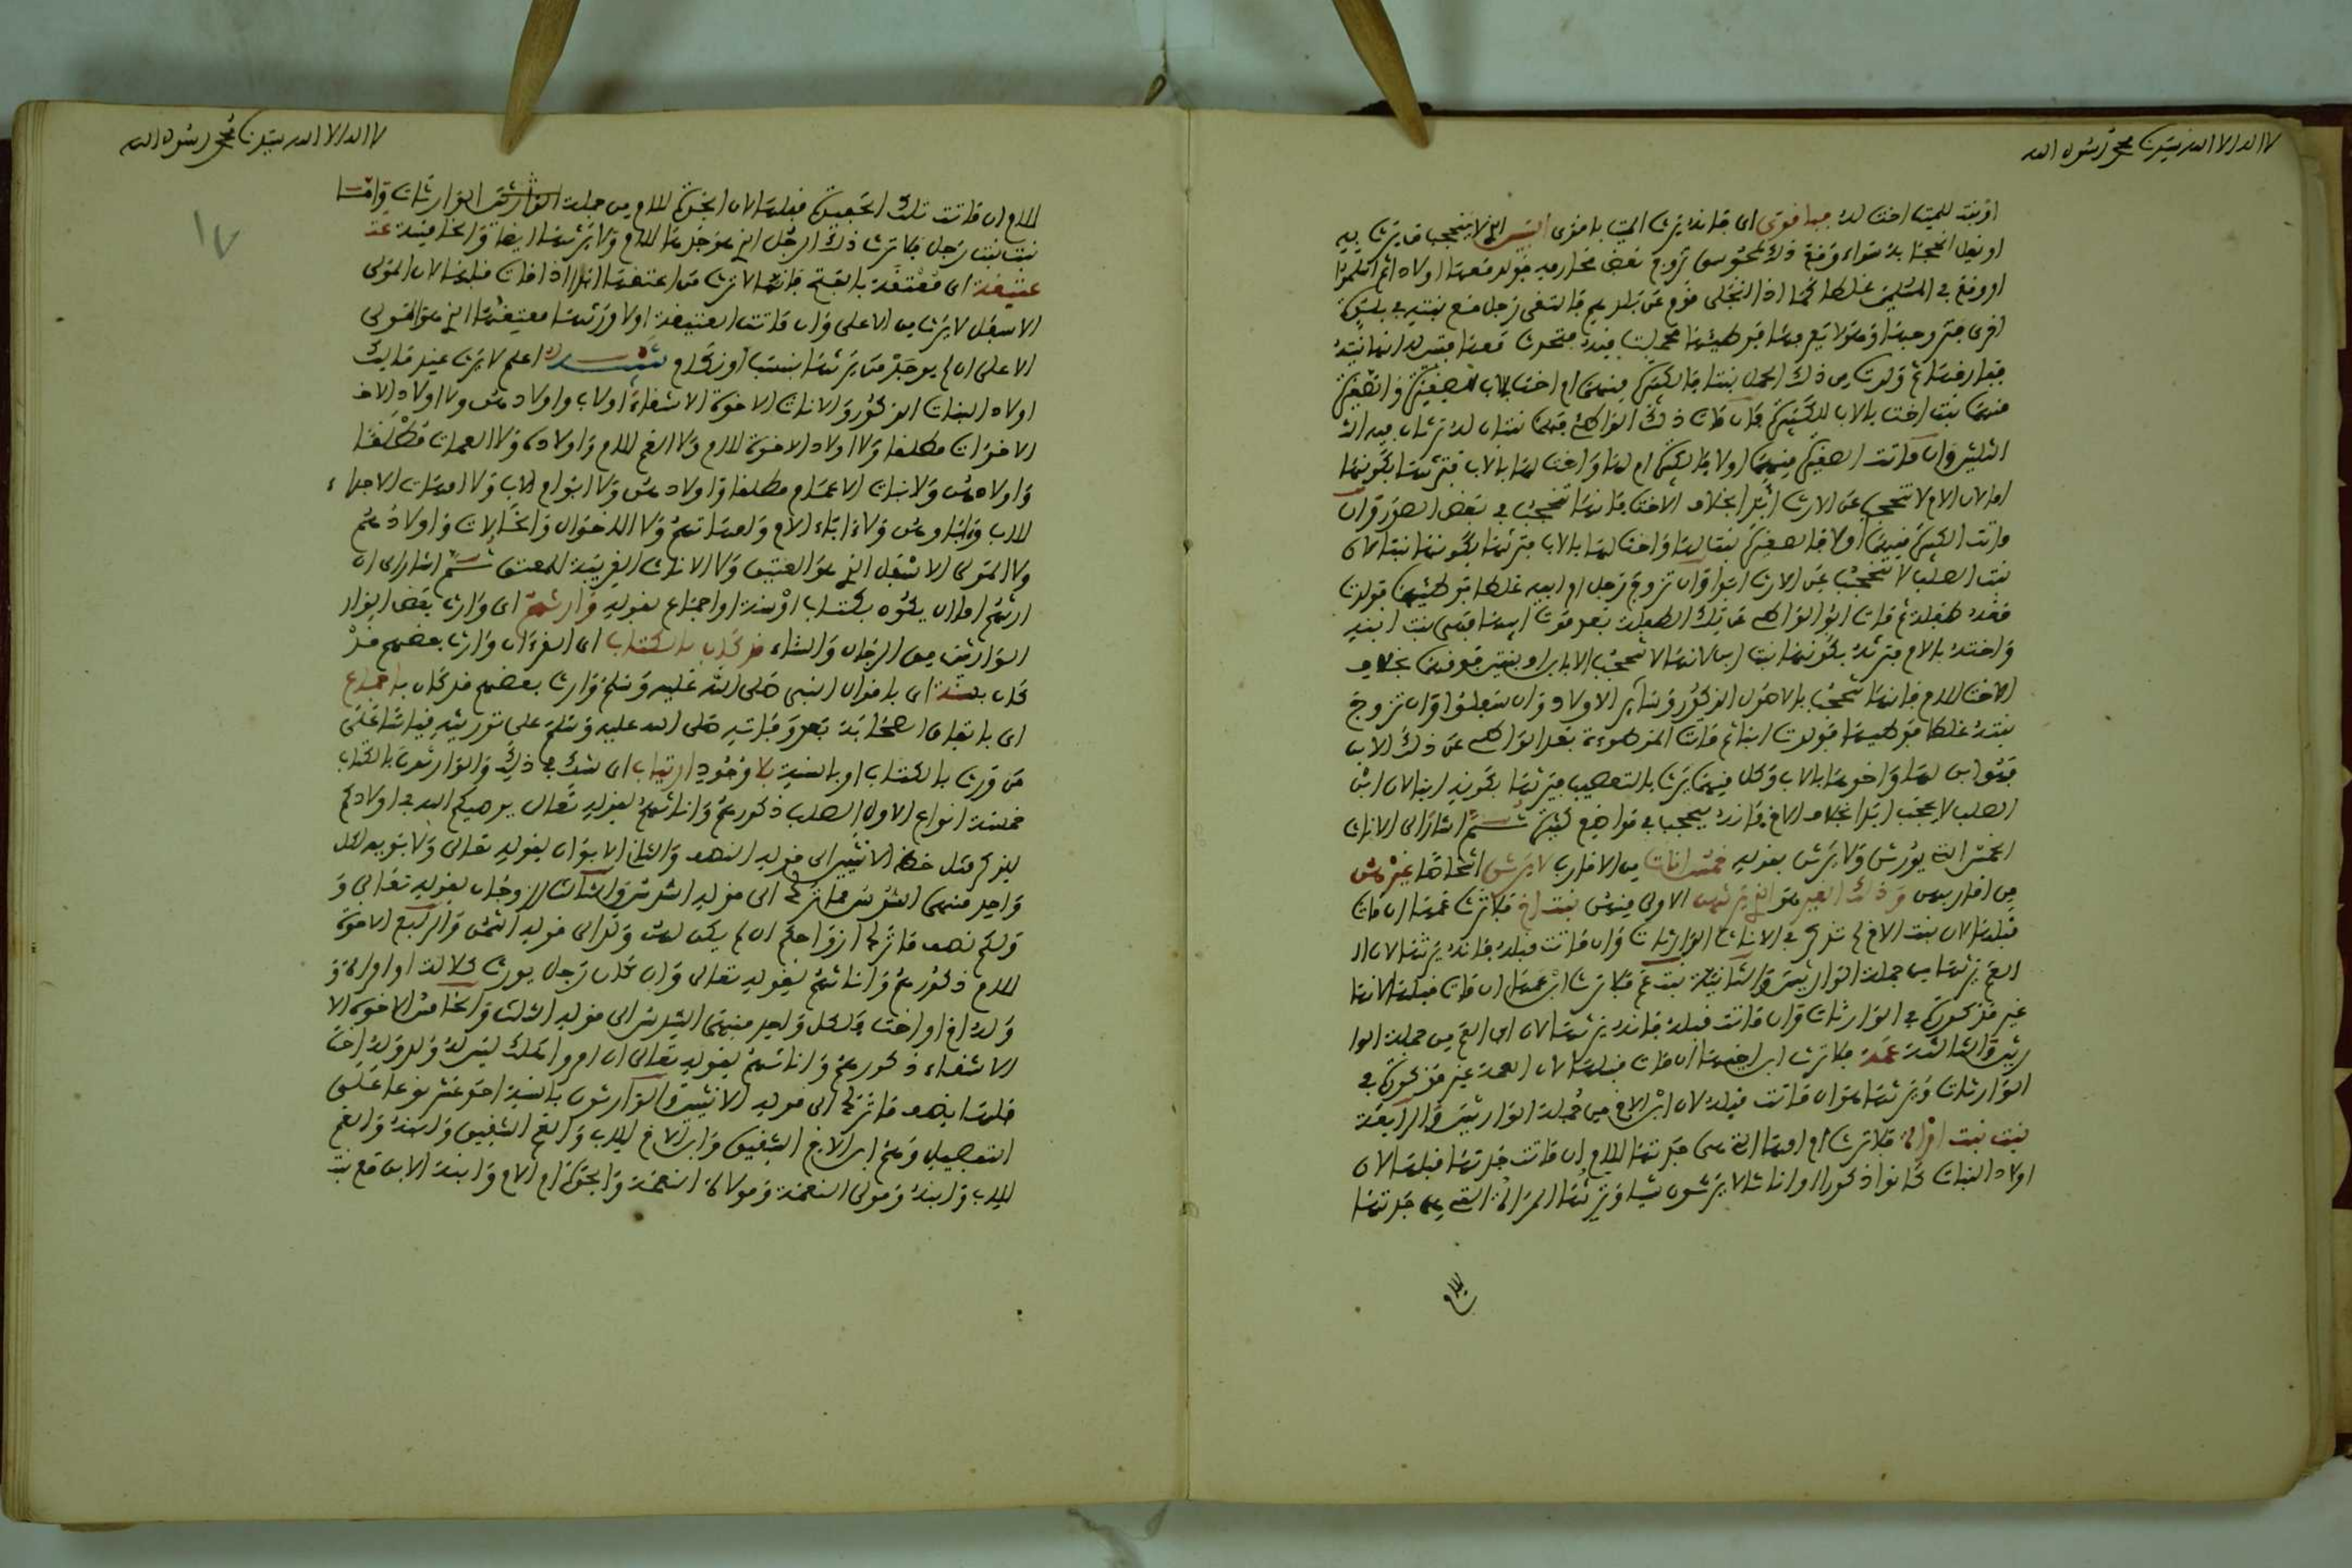 لا اله الا الله سيدنا محمد رسول الله
او بنته للميت اخت له فبا قوى اى فانه يرث الميت با قوى السببين الذى لا ينحجب فيرث به
او يقل الحجب به سواء وقع ذلك لمجوسى تزوج بعض محارمه فولد منها اولادا ثم اسلموا
او وقع فى المسلمين غلطا كما اذا انجلى قوم عن بلدهم فالتقى رجل مع بنته فى بلدة
اخرى فتزوجها وهو لا يعرفها فوطئها فحملت منه
فتعارفا ثم ولدت من ذلك الحمل بنتا فالكبيرة منهما ام اخت لاب للصغيرة والصغيرة
منهما بنت اخت بالاب للكبيرة فان مات ذلك الواطئ فهما بنتان له ترثان فيه الثـ
الثلثين وان ماتت الصغيرة منهما اولا فالكبيرة ام لها واخت لها بالاب فترثها بكونها
اما لان الام لا تنحجب عن الارث ابدا بخلاف الاخت فانها تنحجب فى بعض الصور وان
ماتت الكبيرة منهما اولا فالصغيرة بنت لها واخت لها بالاب فترثها بكونها بنتا لان
بنت الصلب لا تنحجب عن الارث ابدا وان تزوج رجل ام ابيه غلطا فوطئها فولدت
منه طفلة ثم مات ابو الواطئ عن تلك الطفلة بعد موت ابيها فهى بنت ابنه
واخته بالام فترثه بكونها بنت ابن لانها لا تنحجب الا بابن او بنتين فوقها بخلاف
الاخت للام فانها تنحجب بالاصول الذكور وسائر الاولاد وان سفلوا وان تزوج
بنته غلطا فوطئها فولدت ابنا ثم ماتت الموطوءة بعد الواطئ عن ذلك الابن
فهو ابن لها واخوها بالاب وكل منهما يرث بالتعصيب فيرثها بكونه ابنا لان ابن
الصلب لا يحجب ابدا بخلاف الاخ فانه ينحجب فى مواضع كثيرة ثم اشار الى الاناث
الخمس التى يورثن ولا يرثن بقوله خمس اناث من الاقارب لا يرثن اشخاصا غيرهن
من اقاربهن وذلك الغير هو الذى يرثهن الاولى منهن بنت اخ فلا ترث عمها ان مات
قبلها لان بنت الاخ لم تذكر فى الاناث الوارثات وان ماتت قبله فانه يرثها لان ا
العم يرثها من جملة الوارثين والثانية بنت عم فلا ترث ابن عمها ان مات قبلها لانها
غير مذكورة فى الوارثات وان ماتت قبله فانه يرثها لان ابن العم من جملة الوا
رثين والثالثة عمة فلا ترث ابن اخيها ان مات قبلها لان العمة غير مذكورة فى
الوارثات ويرثها هو ان ماتت قبله لان ابن الاخ من جملة الوارثين والرابعة
بنت بنت امراة فلا ترث ام امها التى هى جدتها للام ان ماتت جدتها قبلها لان
اولاد البنات كانوا ذكورا او اناثا لا يرثون شيئا وترثها المراة التى هى جدتها
لا اله الا الله سيدنا محمد رسول الله
١٧
للام ان ماتت تلك الحفيدة قبلها لان الجدة للام من جملة الوارثين الوارثات واما
بنت بنت رجل فلا ترث ذلك الرجل الذى هو جدها للام ولا يرثها ايضا والخامسة عند
عتيقة اى معتقة بالفتح فانها لا ترث من اعتقها ابدا اذا مات قبلها لان المولى
الاسفل لا يرث من الاعلى وان ماتت العتيقة اولا ورثها معتقها الذى هو المولى
الاعلى ان لم يوجد من يرثها بنسب او نكاح تنبيه اعلم لا يرث عند مالك
اولاد البنات الذكور والاناث الاخوة الاشقاء او لاب واولادهن ولا اولاد الاخـ
الاخوات مطلقا ولا اولاد الاخوة للام ولا العم للام واولاده ولا العمات مطلقا
واولادهن ولا بنات الاعمام مطلقا واولادهن ولا ابو ام الاب ولا امهات الاجداد
للاب وابناؤهن ولا اباء الام وامهاتهم ولا الاخوال والخالات واولادهم
ولا المولى الاسفل الذى هو العتيق ولا الاناث القريبة للمعتق ثم اشار الى ان
ارثهم اما ان يكون بكتاب او سنة او اجماع بقوله وارثهم اى وارث بعض الوار
الوارثين من الرجال والنساء قد كان بالكتاب اى القرءان وارث بعضهم قد
كان بسنة اى باقوال النبى صلى الله عليه وسلم وارث بعضهم قد كان باجماع
اى باتفاق الصحابة بعد وفاته صلى الله عليه وسلم على توريثه قياسا على
من ورث بالكتاب او بالسنة بلا وجود ارتياب اى شك فى ذلك والوارثون بالكتاب
خمسة انواع الاول الصلب ذكورهم واناثهم لقوله تعالى يوصيكم الله فى اولادكم
للذكر مثل حظ الانثيين الى قوله النصف والثانى الابوان لقوله تعالى ولابويه لكل
واحد منهما السدس مما ترك الى قوله السدس والثالث الزوجان لقوله تعالى و
ولكم نصف ما ترك ازواجكم ان لم يكن لهن ولد الى قوله الثمن والرابع الاخوة
للام ذكورهم واناثهم لقوله تعالى وان كان رجل يورث كلالة او امراة و
وله اخ او اخت فلكل واحد منهما السدس الى قوله الثلث والخامس الاخوة الا
الاشقاء ذكورهم واناثهم لقوله تعالى ان امرؤا هلك ليس له ولد وله اخت
فلها نصف ما ترك الى قوله الانثيين والوارثون بالسنة احد عشر نوعا على
التفصيل وهم ابن الاخ الشقيق وابن الاخ للاب والعم الشقيق وابنه والعم
للاب وابنه ومولى النعمة ومولاة النعمة والجدة ام الام وابنة الابن مع بنت